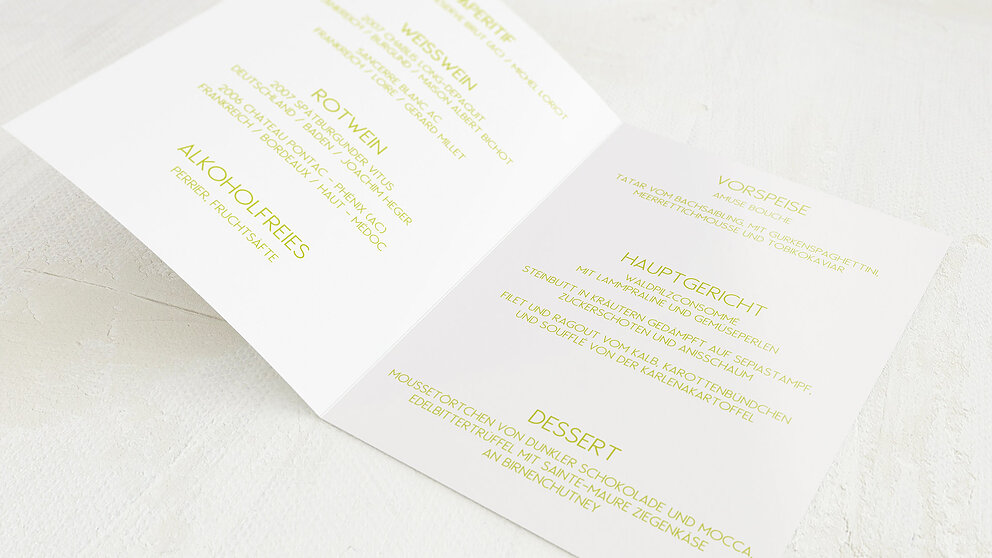 APERITIF
BRUT (AC) / MICHEL LORIOT
WEISSWEIN
2007 CHABLIS, LONG-DEPAQUIT
FRANKREICH / BURGUND / MAISON ALBERT BICHOT
SANCERRE BLANC AC
FRANKREICH / LOIRE / GERARD MILLET
ROTWEIN
2007 SPÄTBURGUNDER VITUS
DEUTSCHLAND / BADEN / JOACHIM HEGER
2006 CHATEAU PONTAC - PHENIX (AC)
FRANKREICH / BORDEAUX / HAUT - MEDOC
ALKOHOLFREIES
PERRIER, FRUCHTSÄFTE
VORSPEISE
AMUSE BOUCHE
TATAR VOM BACHSAIBLING, MIT GURKENSPAGHETTINI,
MEERRETTICHMOUSSE UND TOBIKOKAVIAR
HAUPTGERICHT
WALDPILZCONSOMME
MIT LAMMPRALINE UND GEMÜSEPERLEN
STEINBUTT IN KRÄUTERN GEDAMPFT AUF SEPIASTAMPF,
ZUCKERSCHOTEN UND ANISSCHAUM
FILET UND RAGOUT VOM KALB, KAROTTENBÜNDCHEN
UND SOUFFLÉ VON DER KARLENAKARTOFFEL
DESSERT
MOUSSETÖRTCHEN VON DUNKLER SCHOKOLADE UND MOCCA
EDELBITTERTRÜFFEL MIT SAINTE-MAURE ZIEGENKÄSE
AN BIRNENCHUTNEY